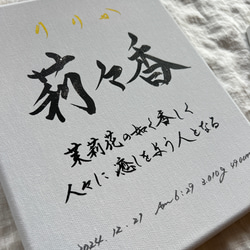 りりか
莉々香
茉莉花の如く香しく
人々に癒しを与う人となる
2024.12.21 am 6:29 3010g 49.0cm